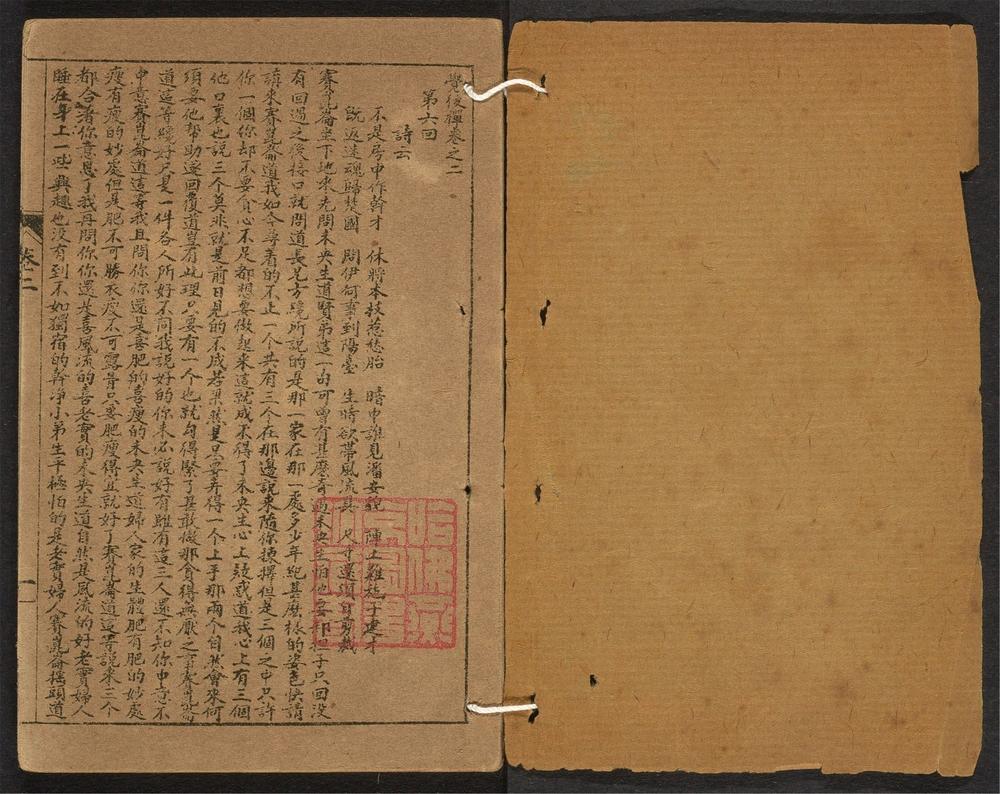 覺後禪卷之二
第六回
詩云
不是房中作幹才 休將本技惹愁胎 暗中誰見潘安貌 陣上難施子建才
既返迷魂歸楚國 問伊何事到陽臺 生時欲帶風流具 尺寸還須自剪裁
賽崑崙坐下地來先問未央生道賢弟這一向可曾有甚麼奇遇未央生怕他要卸担子只回沒
有回過之後接口就問道長兄方纔所說的是那一家在那一處多少年紀甚麼樣的姿色快請
講來賽崑崙道我如今尋着的不止一个共有三个在那邊說來隨你揀擇但是三個之中只許
你一個你却不要貪心不足都想要做起來這就成不得了未央生心上疑惑道我心上有三個
他口裏也說三个莫非就是前日見的不成若果然是只要弄得一个上手那兩个自然會來何
須要他幫助遂回覆道豈有此理只要有一个也就勾得緊了甚敢做那貪得無厭之事賽崑崙
道這等纔好只是一件各人所好不同我說好的你未必說好有雖有這三人還不知你中意不
中意賽崑崙道這等我且問你你還是喜肥的喜瘦的未央生道婦人家的生體肥有肥的妙處
瘦有瘦的妙處但是肥不可勝衣瘦不可露骨只要肥瘦得宜就好了賽崑崙道這等說來三个
都合着你意思了我再問你你還是喜風流的喜老實的未央生道自然是風流的好老實婦人
睡在身上一些興趣也沒有到不如獨宿的幹淨小弟生平極怕的是老實婦人賽崑崙搖頭道
卷二
一